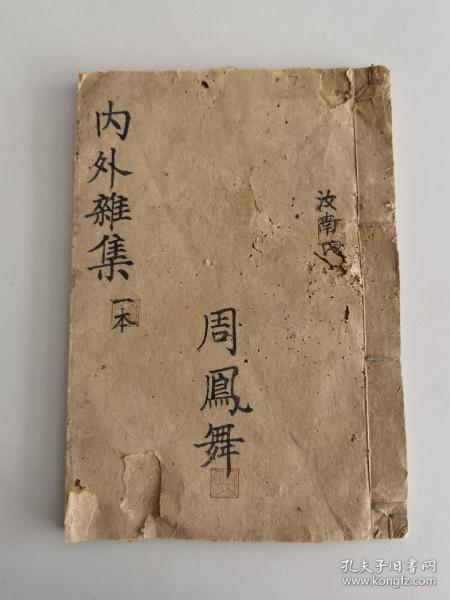 内外雜集
一本
周鳳舞
汝南氏
孔夫子旧书网
www.kongfz.com